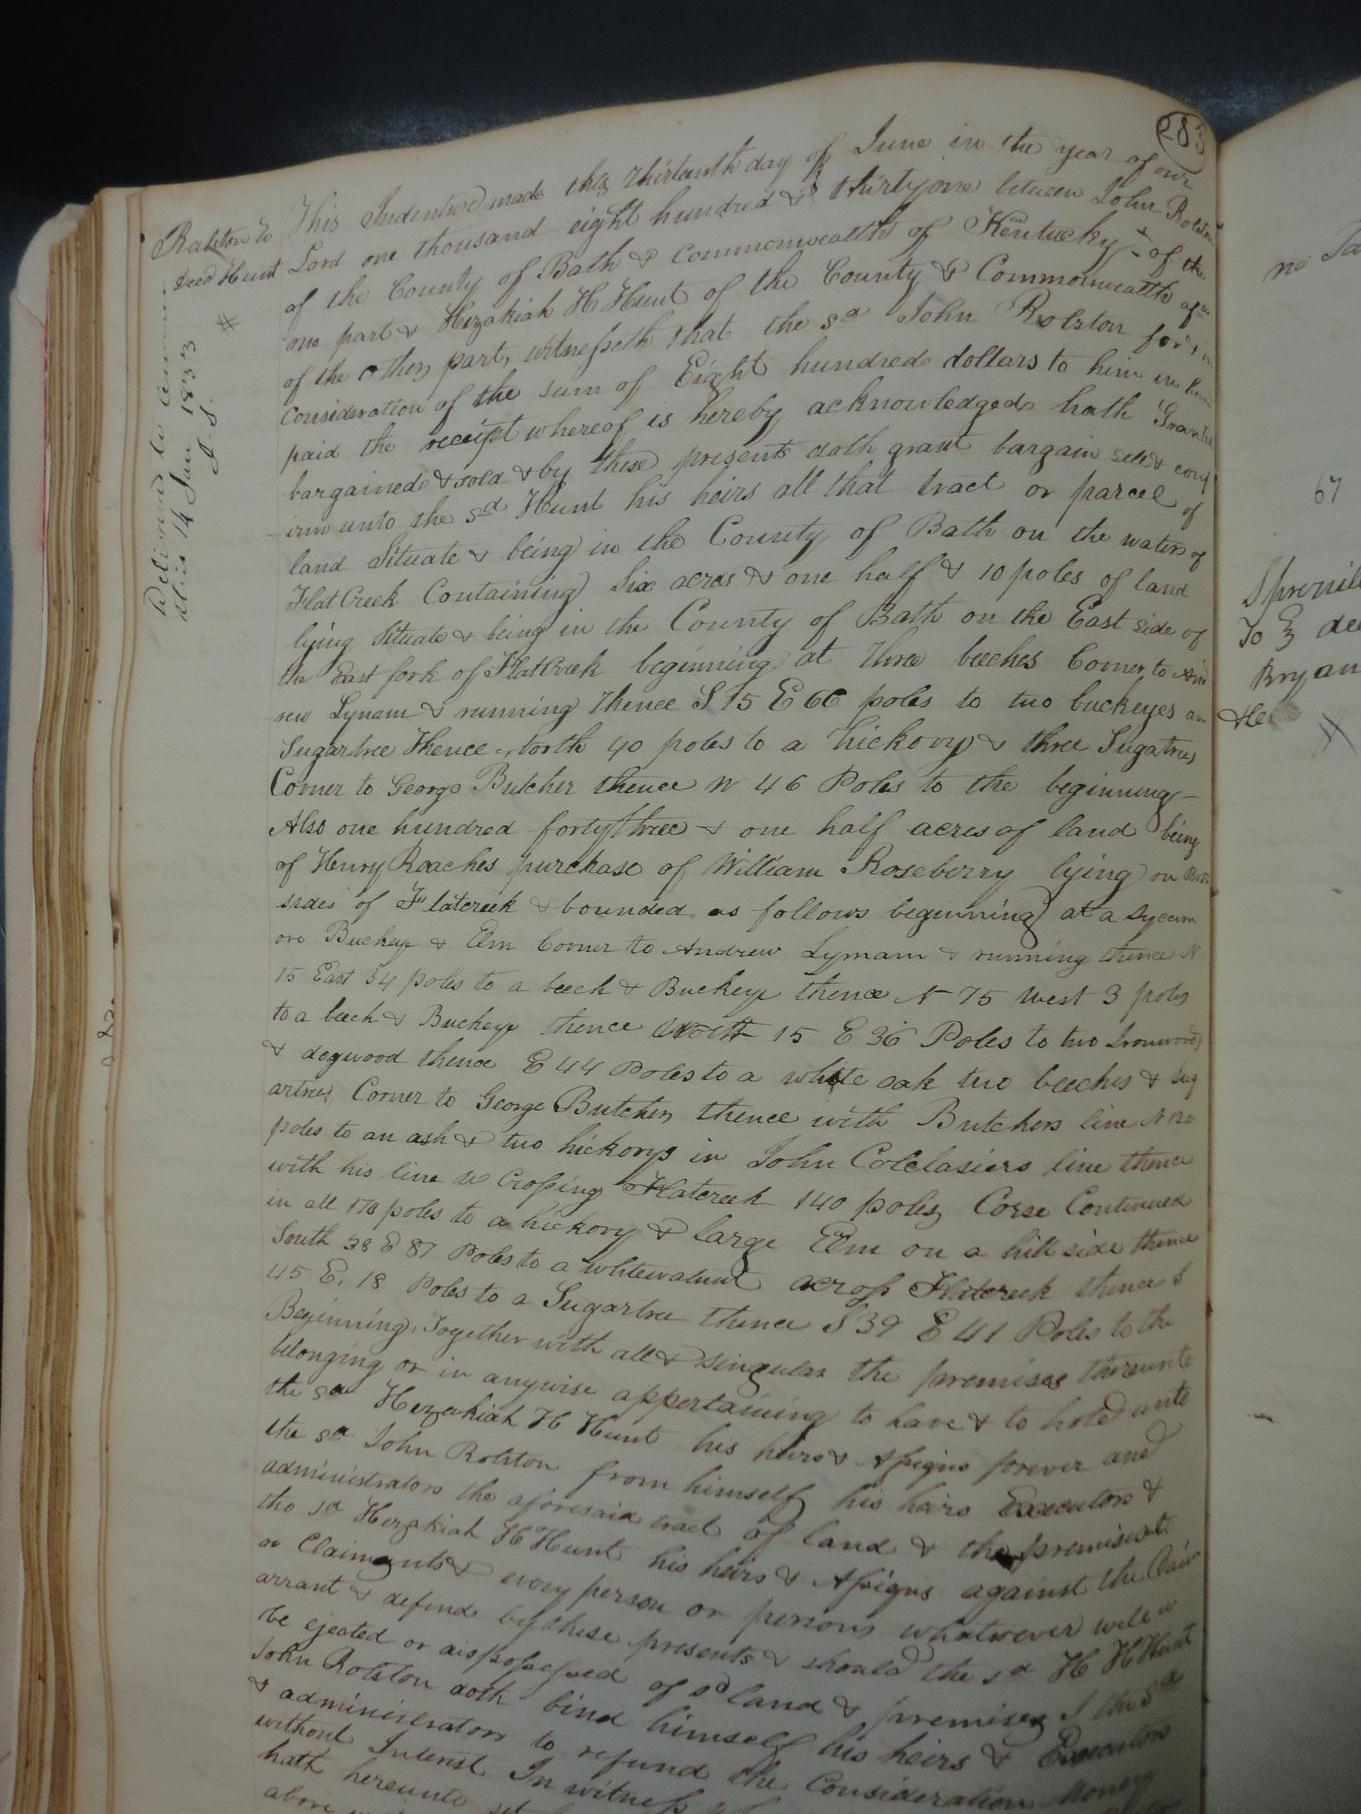 283
Ralston to
deed Hunt
#
Delivered to
atis 14 Jan 1833
J. S.
This Indenture made this thirteenth day of June in the year of our
Lord one thousand eight hundred & thirtyone between John Rolston
of the County of Bath & Commonwealth of Kentucky of the
one part & Hezakiah H Hunt of the County & Commonwealth afs
of the other part, witnesseth that the sd John Rolston for & in
Consideration of the sum of Eight hundred dollars to him in hand
paid the receipt whereof is hereby acknowledged hath Granted
bargained & sold & by these presents doth grant bargain sell & conf
irm unto the sd Hunt his heirs all that tract or parcel of
land Situate & being in the County of Bath on the waters of
Flat Creek Containing Six acres & one half & 10 poles of land
lying Situate & being in the County of Bath on the East side of
the East fork of Flat Creek beginning at three beeches Corner to And
rew Lynam & running thence S 75 E 66 poles to two buckeyes an
Sugartree thence North 40 poles to a hickory & three Sugatrees
Corner to George Butcher thence W 46 Poles to the beginning -
Also one hundred fortythree & one half acres of land being
of Henry Roaches purchase of William Roseberry lying on Both
sides of Flatcreek & bounded as follows beginning at a Sycam
ore Buckeye & Elm Corner to Andrew Lymam & running thence N
15 East 34 poles to a beech & Buckeye thence N 75 West 3 poles
to a beech & Buckeye thence North 15 E 36 Poles to two Ironwoods
& dogwood thence E 44 Poles to a white oak two beeches & Sug
artrees Corner to George Butcher, thence with Butchers line N 120
poles to an ash & two hickorys in John Colclasiers line thence
with his line W Crossing Flatcreek 140 poles, Corse Continued
in all 176 poles to a hickory & large Elm on a hill side thence
South 38 E 87 Poles to a whitewalnut across Flatcreek thence S
45 E. 18 Poles to a Sugartree thence S 39 E 41 Poles to the
Beginning, Together with all & singular the premises thereunto
belonging or in anywise appertaining to have & to hold unto
the sd Hezakiah H Hunt his heirs & Assigns forever and
the sd John Rolston from himself his heirs Executors &
administrators the aforesaid tract of land & the premises to
the sd Hezakiah H Hunt his heirs & Assigns against the Claim
or Claimants & every person or persons whatsoever will w
arrant & defend by these presents & should the sd H H Hunt
be ejected or dispossessed of sd land & premises I the sd
John Rolston doth bind himself his heirs & Executors
& administrators to refund the Consideration Money
without Interest In witness
hath hereunto set
above
no
67
To
dee
Bryan
#